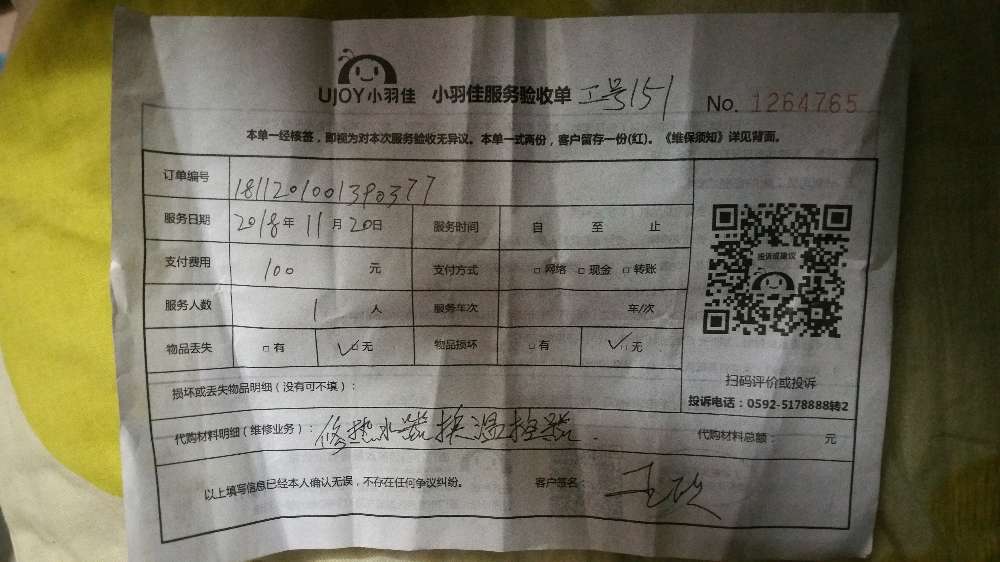 UJOY小羽佳 小羽佳服务验收单 工号151 No. 1264765
本单一经核签，即视为对本次服务验收无异议。本单一式两份，客户留存一份(红)。《维保须知》详见背面。
订单编号 1811201001390377
服务日期 2018年11月20日 服务时间 自 至 止
支付费用 100 元 支付方式 □网络 □现金 □转账
服务人数 1 人 服务车次 车/次
物品丢失 □有 ✓□无 物品损坏 □有 ✓□无
投诉或建议
扫码评价或投诉
投诉电话：0592-5178888转2
损坏或丢失物品明细（没有可不填）：
代购材料明细（维修业务）：修热水器换温控器. 代购材料总额： 元
以上填写信息已经本人确认无误，不存在任何争议纠纷。 客户签名：